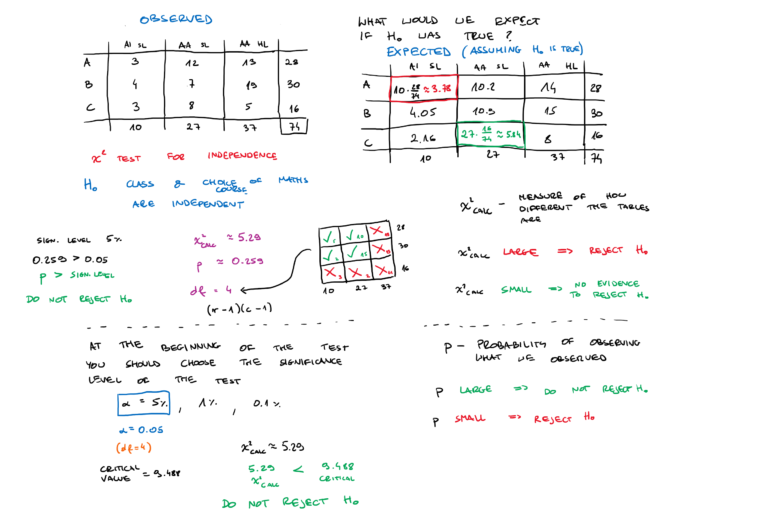 OBSERVED
AI SL AA SL AA HL
A 3 12 13 28
B 4 7 19 30
C 3 8 5 16
10 27 37 74
x² TEST FOR INDEPENDENCE
H₀ CLASS & CHOICE OF MATHS
COURSE
ARE INDEPENDENT
WHAT WOULD WE EXPECT
IF H₀ WAS TRUE ?
EXPECTED (ASSUMING H₀ IS TRUE)
AI SL AA SL AA HL
A 10·28/74 ≈ 3.78 10.2 14 28
B 4.05 10.9 15 30
C 2.16 27·16/74 ≈ 5.84 8 16
10 27 37 74
SIGN. LEVEL 5%
0.259 > 0.05
p > SIGN. LEVEL
DO NOT REJECT H₀
x²CALC ≈ 5.29
p ≈ 0.259
df = 4
(r-1)(c-1)
28
30
16
10 27 37
x²CALC – MEASURE OF HOW
DIFFERENT THE TABLES
ARE
x²CALC LARGE => REJECT H₀
x²CALC SMALL => NO EVIDENCE
TO REJECT H₀
AT THE BEGINNING OF THE TEST
YOU SHOULD CHOOSE THE SIGNIFICANCE
LEVEL OF THE TEST
α = 5% , 1% , 0.1%
α = 0.05
(df=4)
CRITICAL
VALUE = 9.488
x²CALC ≈ 5.29
5.29 < 9.488
x²CALC CRITICAL
DO NOT REJECT H₀
p – PROBABILITY OF OBSERVING
WHAT WE OBSERVED
p LARGE => DO NOT REJECT H₀
p SMALL => REJECT H₀